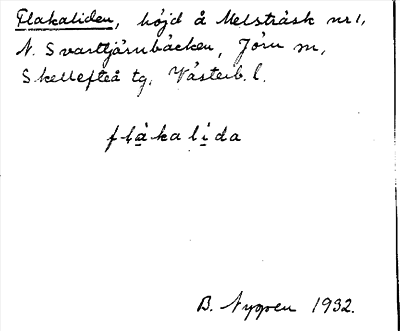 Flakaliden, höjd å Melsträsk nr 1,
N. Svarttjärnbäcken, Jörn sn,
Skellefteå tg, Västerb. l.
flàkalìda
B. Nygren 1932.